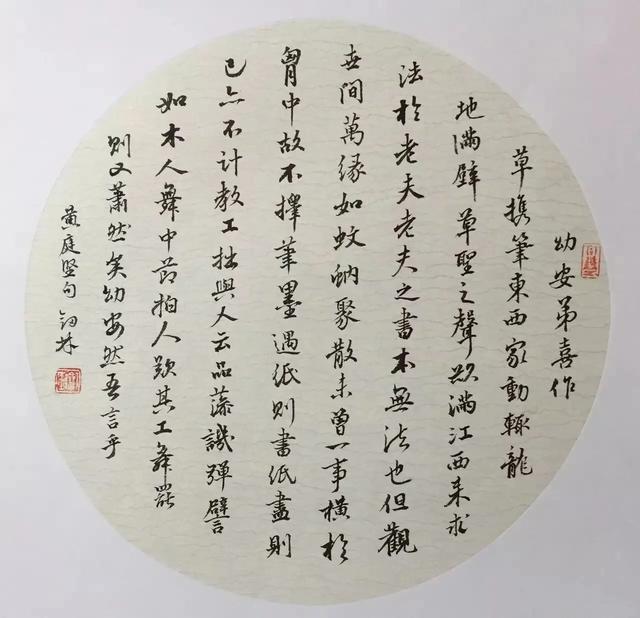 幼安弟喜作
草携筆東西家動輒龍
地滿壁草聖之聲欲滿江西来求
法於老夫老夫之書本無法也但觀
世間萬緣如蚊蚋聚散未曾一事横於
胸中故不擇筆墨遇紙則書紙盡則
已亦不计教工拙與人云品藻譏彈譬
如木人舞中節拍人歎其工舞罷
則又蕭然矣幼安然吾言乎
黄庭堅句